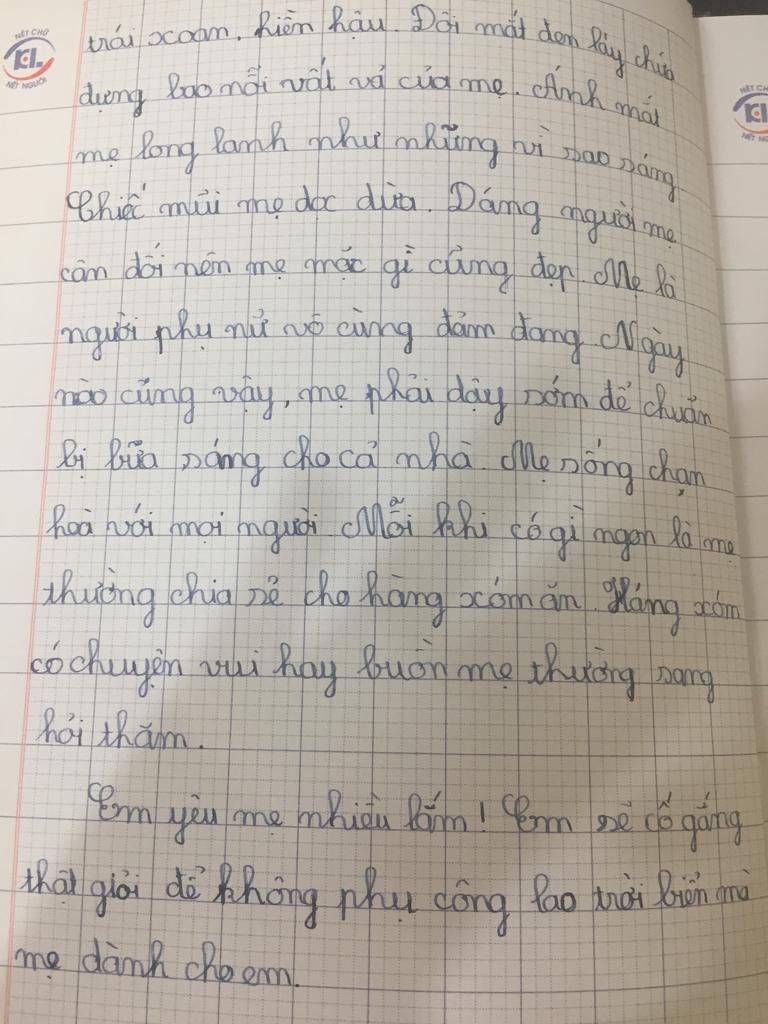 NÉT CHỮ
KL
NẾT NGƯỜI
trái xoan, hiền hậu. Đôi mắt đen láy chứa
đựng bao nỗi vất vả của mẹ. Ánh mắt
mẹ long lanh như những vì sao sáng
Chiếc mũi mẹ dọc dừa. Dáng người mẹ
cân đối nên mẹ mặc gì cũng đẹp. Mẹ là
người phụ nữ vô cùng đảm đang Ngày
nào cũng vậy, mẹ phải dậy sớm để chuẩn
bị bữa sáng cho cả nhà. Mẹ sống chạn
hoà với mọi người. Mỗi khi có gì ngon là mẹ
thường chia sẻ cho hàng xóm ăn. Hàng xóm
có chuyện vui hay buồn mẹ thường sang
hỏi thăm.
Em yêu mẹ nhiều lắm! Em sẽ cố gắng
thật giỏi để không phụ công lao trời biển mà
mẹ dành cho em.
NÉT CH
KL
NẾT NG